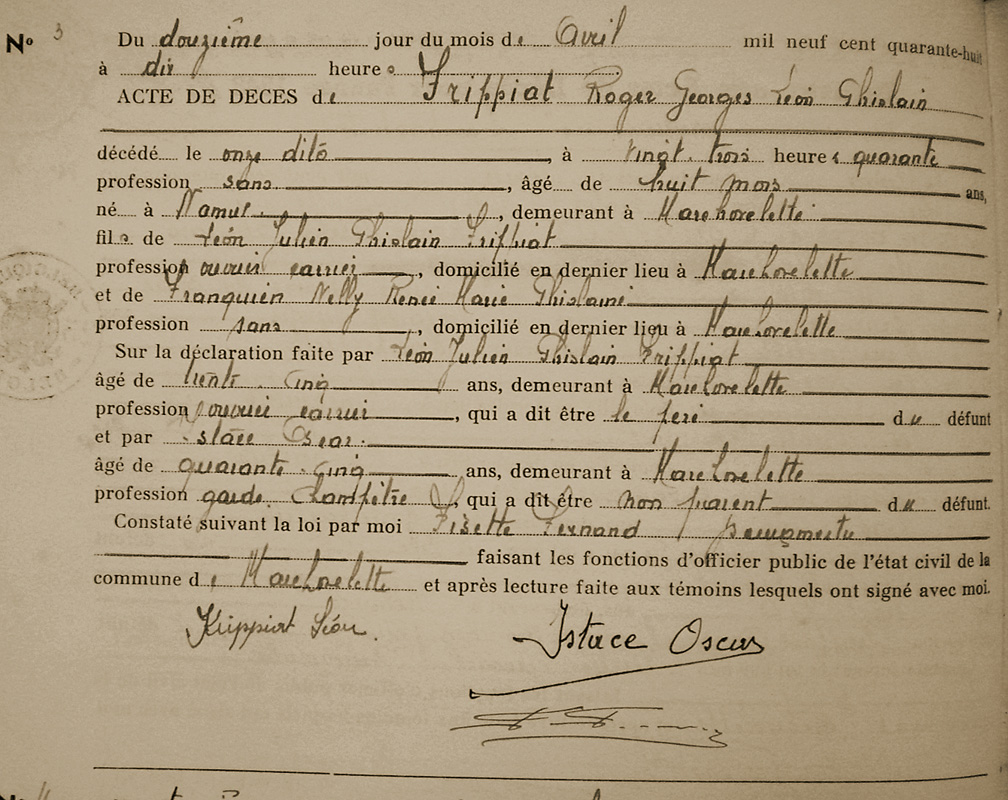 No 3
Du douzième jour du mois de Avril mil neuf cent quarante-huit
à dix heures
ACTE DE DECES de Frippiat Roger Georges Léon Ghislain
décédé le onze dito, à vingt trois heures quarante
profession sans, âgé de huit mois ans,
né à Namur, demeurant à Marchovelette
fils de Léon Julien Ghislain Frippiat
profession ouvrier carrier, domicilié en dernier lieu à Marchovelette
et de Franquien Nelly Renée Marie Ghislaine
profession sans, domicilié en dernier lieu à Marchovelette
Sur la déclaration faite par Léon Julien Ghislain Frippiat
âgé de trente cinq ans, demeurant à Marchovelette
profession ouvrier carrier, qui a dit être le père du défunt
et par Istace Oscar
âgé de quarante cinq ans, demeurant à Marchovelette
profession garde champêtre, qui a dit être non parent du défunt.
Constaté suivant la loi par moi Fernand bourgmestre
faisant les fonctions d'officier public de l'état civil de la
commune de Marchovelette et après lecture faite aux témoins lesquels ont signé avec moi.
Frippiat Léon. Istace Oscar